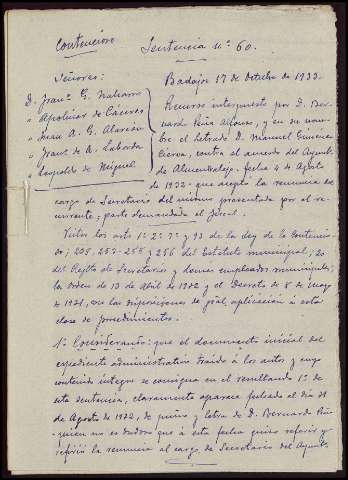 Contencioso
Sentencia nº 60.
Señores:
D. Franº G. Naharro
" Apolinar de Cáceres
" Juan A. G. Alarcón
" Franº de A. Laborda
" Leopoldo de Miguel
Badajoz 17 de Octubre de 1933.
Recurso interpuesto por D. Ber-
nardo Peña Alfonso, y en su nom-
bre el letrado D. Manuel Giménez
Cierva, contra el acuerdo del Ayunt.
de Almendralejo fecha 4 de Agosto
de 1932 que aceptó la renuncia del
cargo de Secretario del mismo presentada por el re-
currente; parte demandada el fiscal.
Vistos los arts 1º 2º 7º y 93 de la ley de lo Contencio-
so; 235, 253- 254 y 256 del Estatuto municipal; 20
del Regltº de Secretarios y demas empleados municipales;
la Orden de 13 de Abril de 1932 y el Decreto de 8 de mayo
de 1931, con las disposiciones de gral. aplicación á esta
clase de procedimientos.
1º Considerando: que el documento inicial del
expediente administrativo traído á los autos y cuyo
contenido íntegro se consigna en el resultando 1º de
esta sentencia, claramente aparece fechado el día
de Agosto de 1932, de puño y letra de D. Bernardo Peña
quien no es dudoso que á esta fecha quiso referir y
refirió la renuncia al cargo de Secretario del Ayunt-